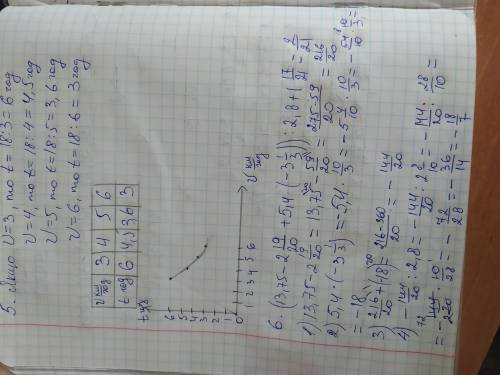 5. Якщо v=3, то t=18:3=6 год
v=4, то t=18:4=4,5 год
v=5, то t=18:5=3,6 год
v=6, то t=18:6=3 год
v км/год 3 4 5 6
t год 6 4,5 3,6 3
t год
6
5
4
3
2
1
0
1 2 3 4 5 6
v км/год
6. (13,75-2 19/20+5,4·(-3 1/3)):2,8+1 17/21=2/21
1) 13,75-2 19/20=13,75-59/20=275-59/20=216/20
2) 5,4·(-3 1/3)=5,4·10/3=-5 4/10·10/3=-54/10·10/3=
=-18
3) 216/20+(-18)=216-360/20=-144/20
4) -144/20:2,8=-144/20:2 8/10=-144/20:28/10=
=-144/20·10/28=-72/28=-36/14=-18/7